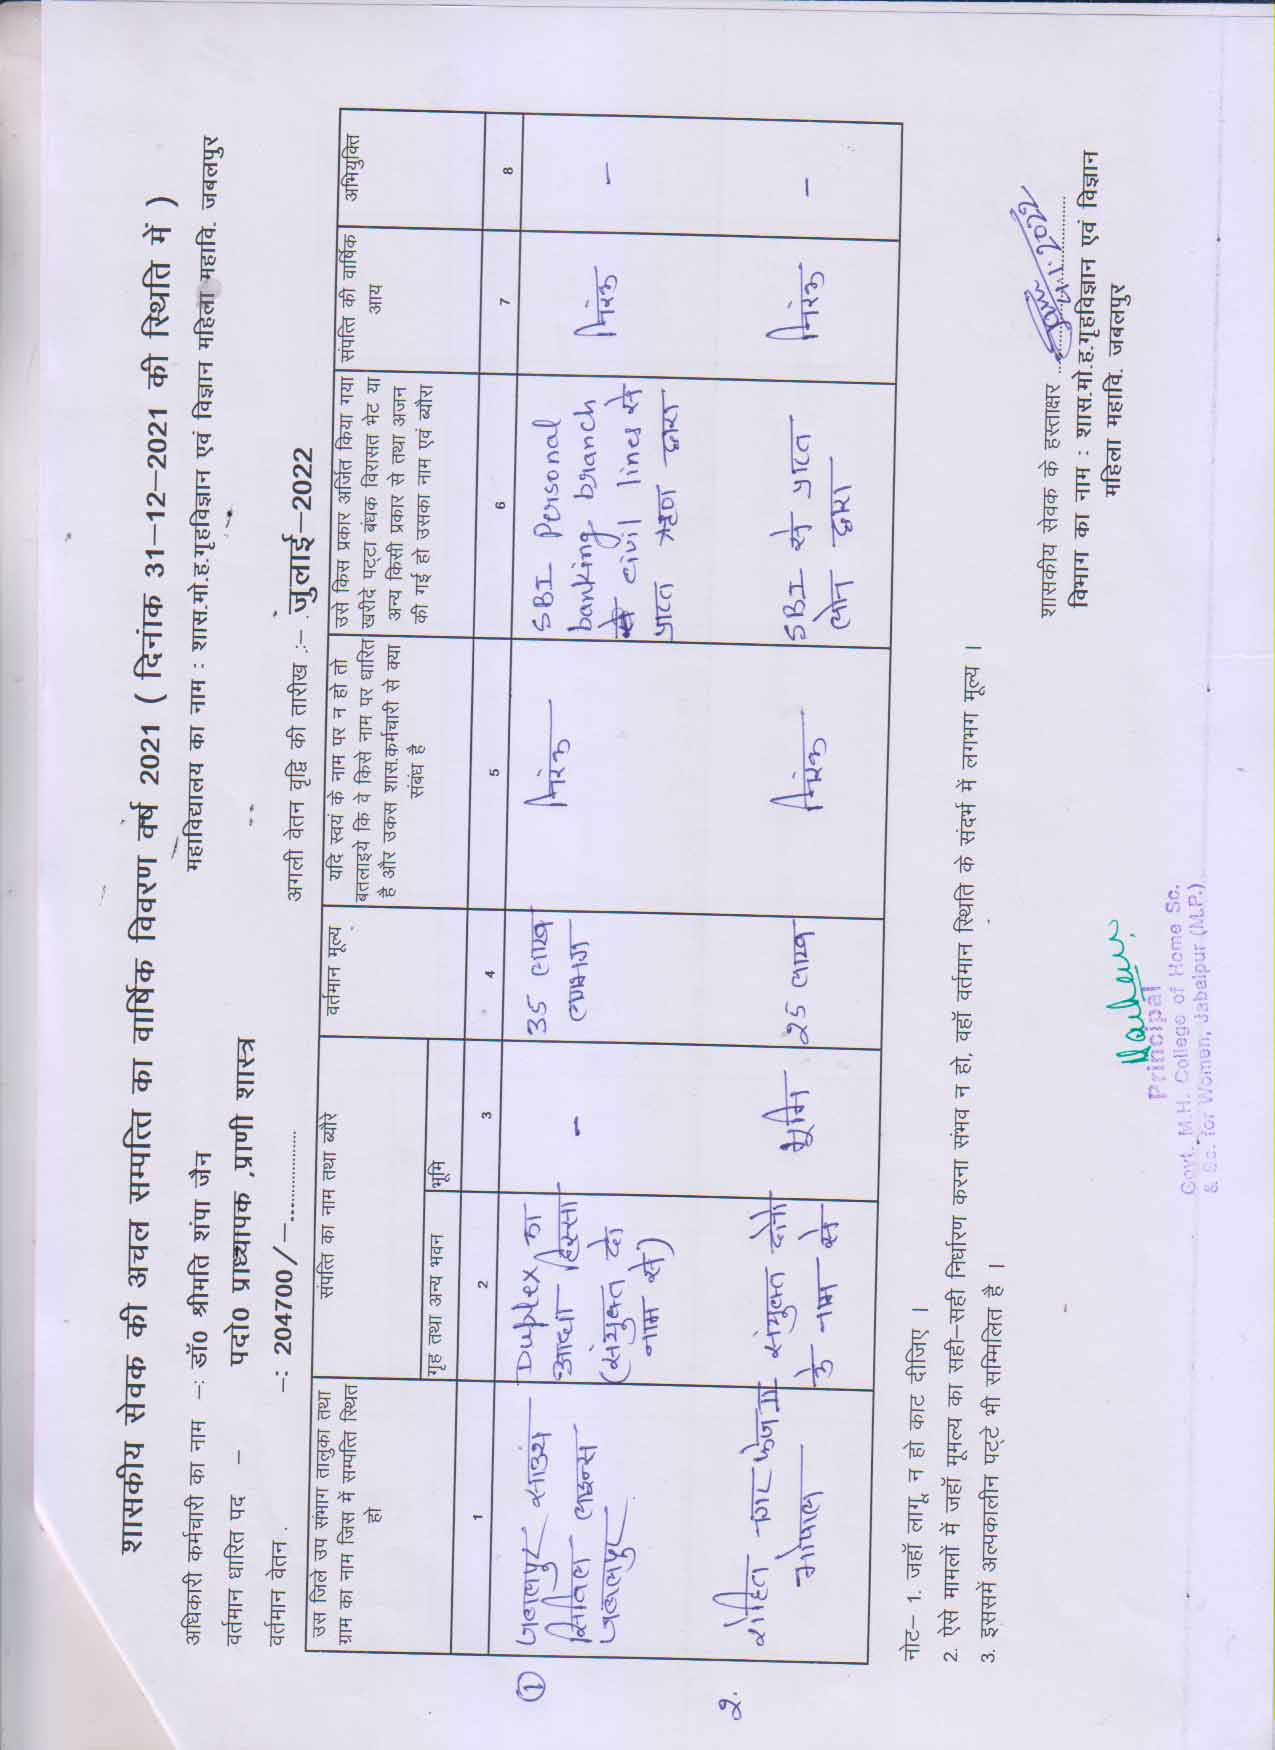 शासकीय सेवक की अचल सम्पत्ति का वार्षिक विवरण वर्ष 2021 ( दिनांक 31–12–2021 की स्थिति में )
अधिकारी कर्मचारी का नाम –: डॉ० श्रीमति शंपा जैन
महाविद्यालय का नाम : शास.मो.ह.गृहविज्ञान एवं विज्ञान महिला महावि. जबलपुर
वर्तमान धारित पद – पदो० प्राध्यापक ,प्राणी शास्त्र
वर्तमान वेतन . –: 204700/–..................
अगली वेतन वृद्धि की तारीख :– जुलाई–2022
उस जिले उप संभाग तालुका तथा
ग्राम का नाम जिस में सम्पत्ति स्थित
हो
संपत्ति का नाम तथा ब्यौरे
गृह तथा अन्य भवन
भूमि
वर्तमान मूल्य
यदि स्वयं के नाम पर न हो तो
बतलाइये कि वे किसे नाम पर धारित
है और उकस शास.कर्मचारी से क्या
संबंध है
उसे किस प्रकार अर्जित किया गया
खरीदे पट्टा बंधक विरासत भेट या
अन्य किसी प्रकार से तथा अजन
की गई हो उसका नाम एवं ब्यौरा
संपत्ति की वार्षिक
आय
अभियुक्ति
1 2 3 4 5 6 7 8
①
जबलपुर साउथ
सिविल लाइन्स
जबलपुर
Duplex का
आधा हिस्सा
(संयुक्त दो
नाम से)
–
35 लाख
लगभग
निरंक
SBI Personal
banking branch
civil lines से
प्राप्त ऋण द्वारा
निरंक
–
2.
रोहित नगर फेज III
भोपाल
संयुक्त दोनो
के नाम से
भूमि
25 लाख
निरंक
SBI से प्राप्त
लोन द्वारा
निरंक
–
नोट– 1. जहाँ लागू न हो काट दीजिए ।
2. ऐसे मामलों में जहाँ मूमल्य का सही–सही निर्धारण करना संभव न हो, वहाँ वर्तमान स्थिति के संदर्भ में लगभग मूल्य ।
3. इससमें अल्पकालीन पट्टे भी सम्मिलित है ।
शासकीय सेवक के हस्ताक्षर
विभाग का नाम : शास.मो.ह.गृहविज्ञान एवं विज्ञान
महिला महावि. जबलपुर
Principal
Govt. M.H. College of Home Sc.
& Sc. for Women, Jabalpur (M.P.)